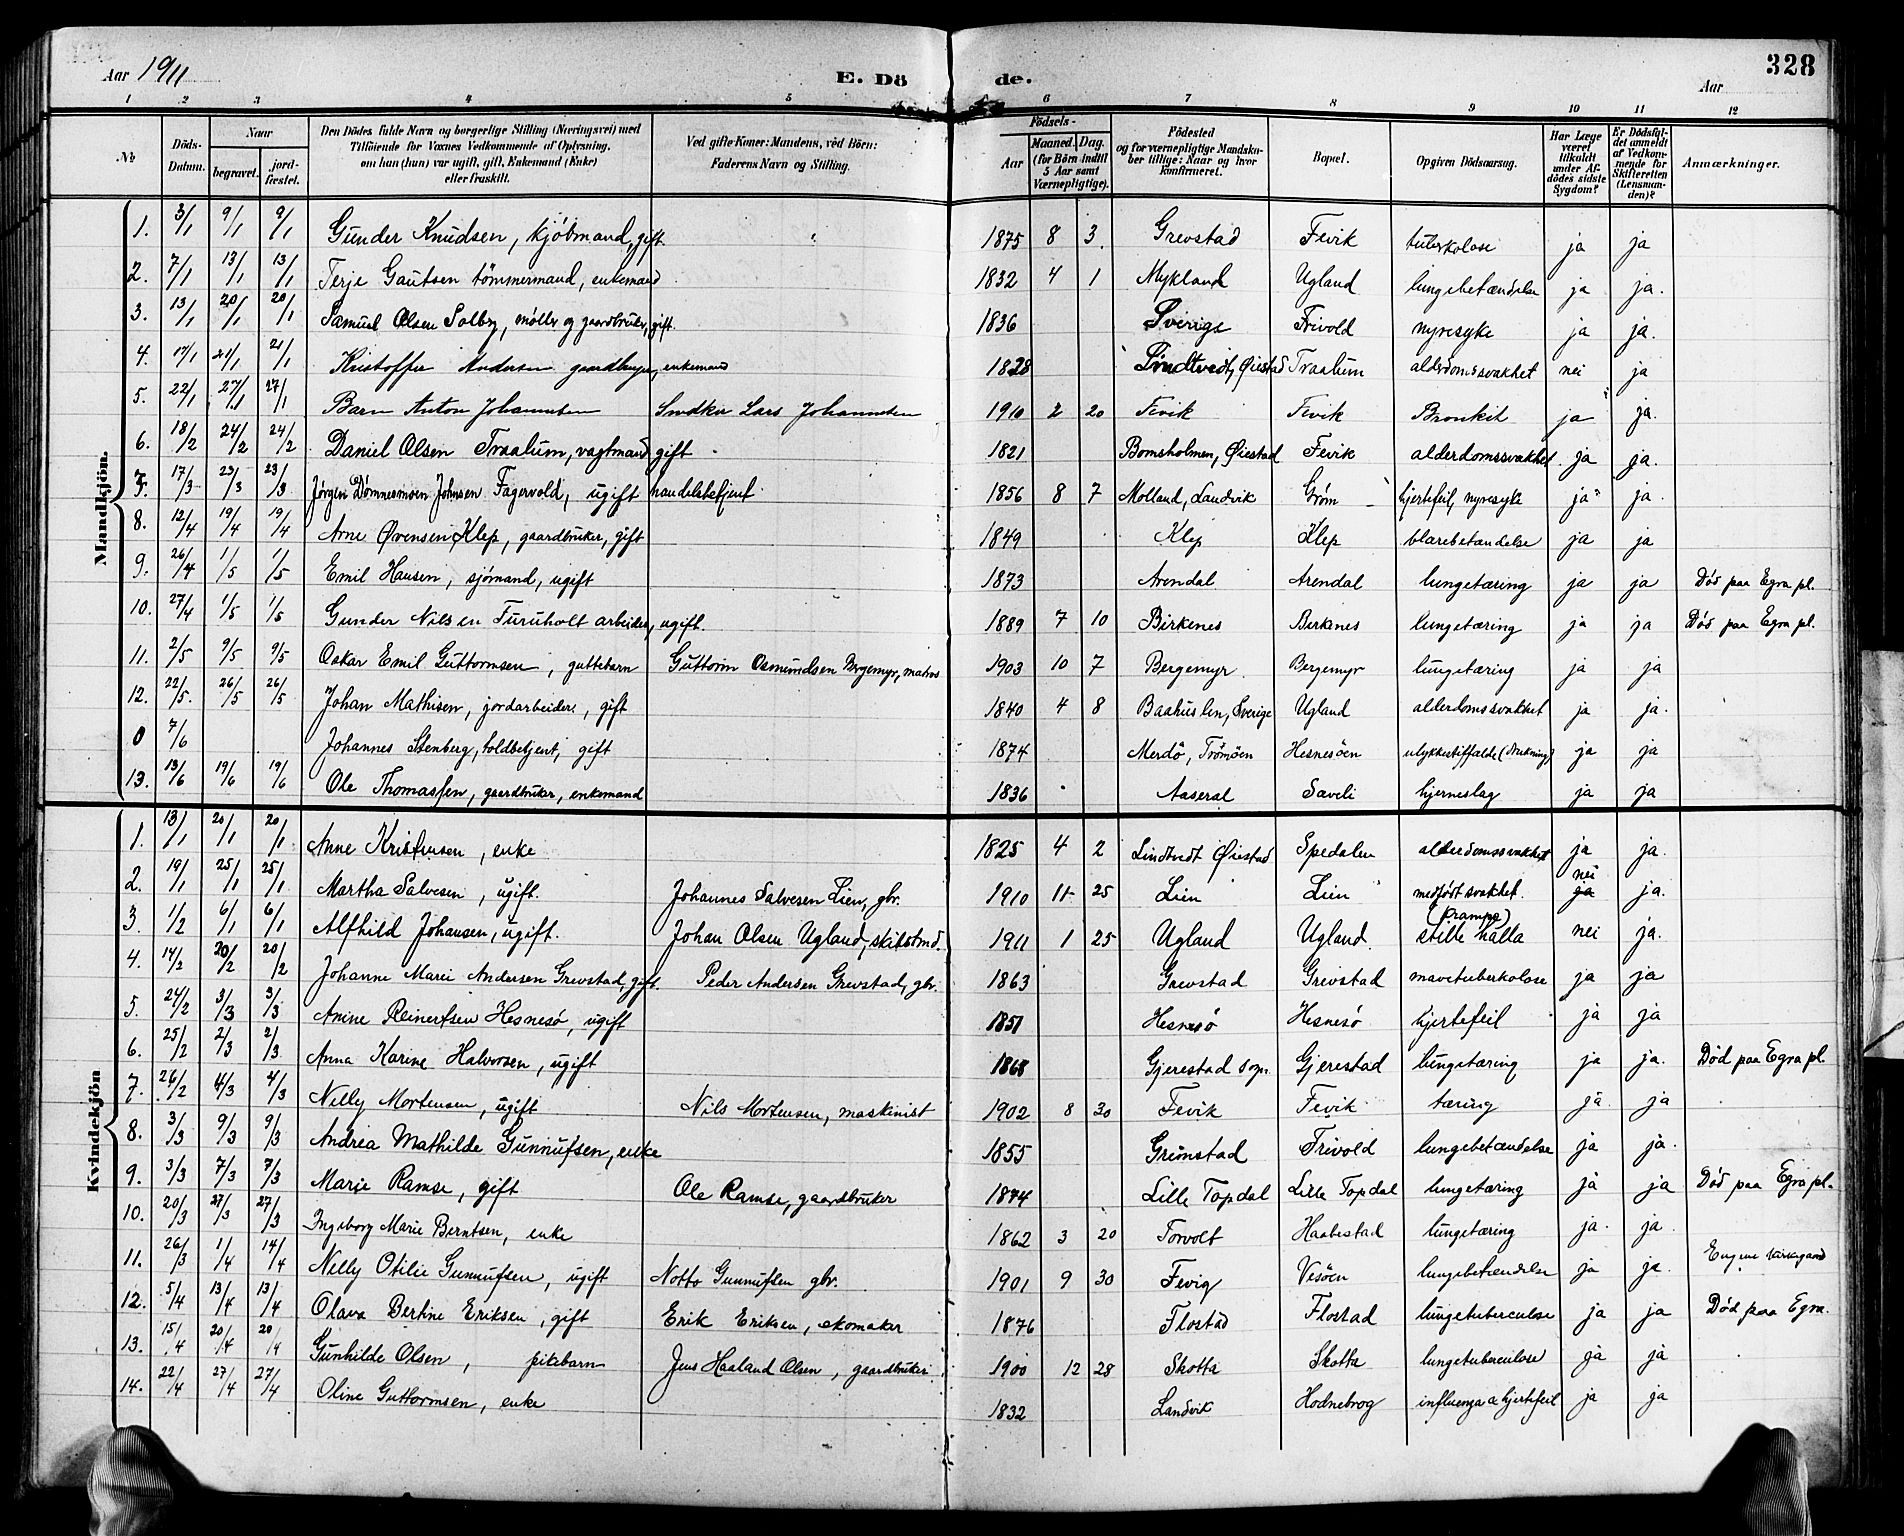 Aar 1911
E. Dö
de.
Aar
328
1 2 3 4 5 6 7 8 9 10 11 12
No
Döds-Datum.
Naar
begravet.
jord-fæstet.
Den Dödes fulde Navn og borgerlige Stilling (Næringsvei) med
Tilföiende for Voxnes Vedkommende af Oplysning,
om han (hun) var ugift, gift, Enkemand (Enke)
eller fraskilt.
Ved gifte Koner: Mandens, ved Börn:
Faderens Navn og Stilling.
Födsels-
Aar
Maaned. Dag.
(for Börn indtil
5 Aar samt
Værnepligtige).
Födested
og for værnepligtige Mandska-
ber tillige: Naar og hvor
konfirmeret.
Bopæl.
Opgiven Dödsaarsag.
Har Læge
været
tilkaldt
under Af-
dödes sidste
Sygdom?
Er Dödsfal-
det anmeldt
af Vedkom-
mende for
Skifteretten
(Lensman-
den)?
Anmærkninger.
Mandkjön.
1. 3/1 9/1 9/1 Gunder Knudsen, kjöbmand, gift 1875 8 3. Grevstad Fevik tuberkolose ja ja
2. 7/1 13/1 13/1 Terje Gautsen tömmermand, enkemand 1832 4 1 Mykland Ugland lungebetændelse ja ja.
3. 13/1 20/1 20/1 Samuel Olsen Solby, møller og gaardbruker, gift. 1836 Sverige Frivold nyresyke ja ja.
4. 17/1 21/1 21/1 Kristoffer Andersen gaardbruger, enkemand 1828 Lindtvedt, Øiestad Traalum alderdomssvakhet nei ja
5. 22/1 27/1 27/1 Barn Anton Johannsen Snedker Lars Johannsen 1910 2 20 Fevik Fevik Bronkit ja ja.
6. 18/2 24/2 24/2 Daniel Olsen Traalum, vagtmand gift 1821 Bomsholmen, Øiestad Fevik alderdomssvakhet ja ja.
7. 17/3 23/3 23/3 Jørgen Johnsen Fagervold, ugift handelsbetjent 1856 8 7 Molland, Landvik Grøm hjertefeil, nyresyke ja ja.
8. 12/4 19/4 19/4 Arne Øvensen Klep, gaardbruker, gift 1849 Klep Klep blærebetændelse ja ja
9. 26/4 1/5 1/5 Emil Hansen, sjömand, ugift 1873 Arendal Arendal lungetæring ja ja Död paa Egra pl.
10. 27/4 1/5 1/5 Gunder Nilsen Furuholt arbeider, ugift. 1889 7 10 Birkenes Birkenes lungetæring ja ja Död paa Egra pl.
11. 2/5 9/5 9/5 Oskar Emil Guttormsen, guttebarn Guttorm Osmundsen Bergemyr, matros 1903 10 7 Bergemyr. Bergemyr lungetæring ja ja
12. 22/5. 26/5 26/5 Johan Mathisen, jordarbeider, gift 1840 4 8 Baahuslen, Sverige Ugland alderdomssvakhet ja ja.
0 7/6 Johannes Stenberg, toldbetjent, gift 1874 Merdö, Tromöen Hesnesöen ulykkestilfælde (drukning) ja ja
13. 13/6 19/6 19/6 Ole Thomassen, gaardbruker, enkemand 1836 Aaseral Saveli hjerneslag ja ja
Kvindekjön
1. 13/1 20/1 20/1 Anne Kristensen, enke 1825 4 2 Lindtvedt Øiestad Spedalen alderdomssvakhet ja ja.
2. 19/1 25/1 25/1 Martha Salvesen, ugift. Johannes Salvesen Lien, gbr. 1910 11 25 Lien Lien medfödt svakhet. nei ja ja.
3. 1/2 6/1 6/1 Alfhild Johansen, ugift. Johan Olsen Ugland, skibstmd. 1911 1 25 Ugland Ugland. (Krampe) stille halla nei ja.
4. 14/2 20/2 20/2 Johanne Marie Andersen Grevstad, gift. Peder Andersen Grevstad, gbr. 1863 Grevstad Grevstad mavetuberkolose ja ja
5. 24/2 3/3 3/3 Anine Reinertsen Hesnesø, ugift 1851 Hesnesø Hesnesø hjertefeil ja ja
6. 25/2 2/3 2/3 Anna Karine Halvorsen, ugift 1868 Gjerestad sogn Gjerestad lungetæring ja ja. Död paa Egra pl.
7. 26/2 4/3 4/3 Nelly Mortensen, ugift Nils Mortensen, maskinist 1902 8 30 Fevik Fevik tæring ja. ja
8. 3/3 9/3 9/3 Andrea Mathilde Gunnufsen, enke 1855 Grimstad Frivold lungebetændelse ja ja.
9. 3/3 7/3 7/3 Marie Ramse, gift Ole Ramse, gaardbruker 1874 Lille Topdal Lille Topdal lungetæring ja ja Död paa Egra pl.
10. 20/3 27/3 27/3 Ingeborg Marie Berntsen, enke 1862 3 20 Torvolt Haabestad lungetæring ja. ja.
11. 26/3 1/4 14/4 Nelly Otilie Gunnufsen, ugift Notto Gunnufsen gbr. 1901 9 30 Fevig Vesöen lungebetændelse ja ja. Engene kirkegaard
12. 5/4 13/4 13/4 Olava Bertine Eriksen, gift Erik Eriksen, skomaker 1876 Flostad Flostad lungetuberculose ja ja Död paa Egra.
13. 15/4 20/4 20/4 Gunhilde Olsen, pikebarn Jens Haaland Olsen, gaardbruker 1900 12 28 Skotta Skotta lungetuberculose ja ja
14. 22/4 27/4 27/4 Oline Guttormsen, enke 1832 Landvik Hodnebrog influenza & hjertefeil ja ja